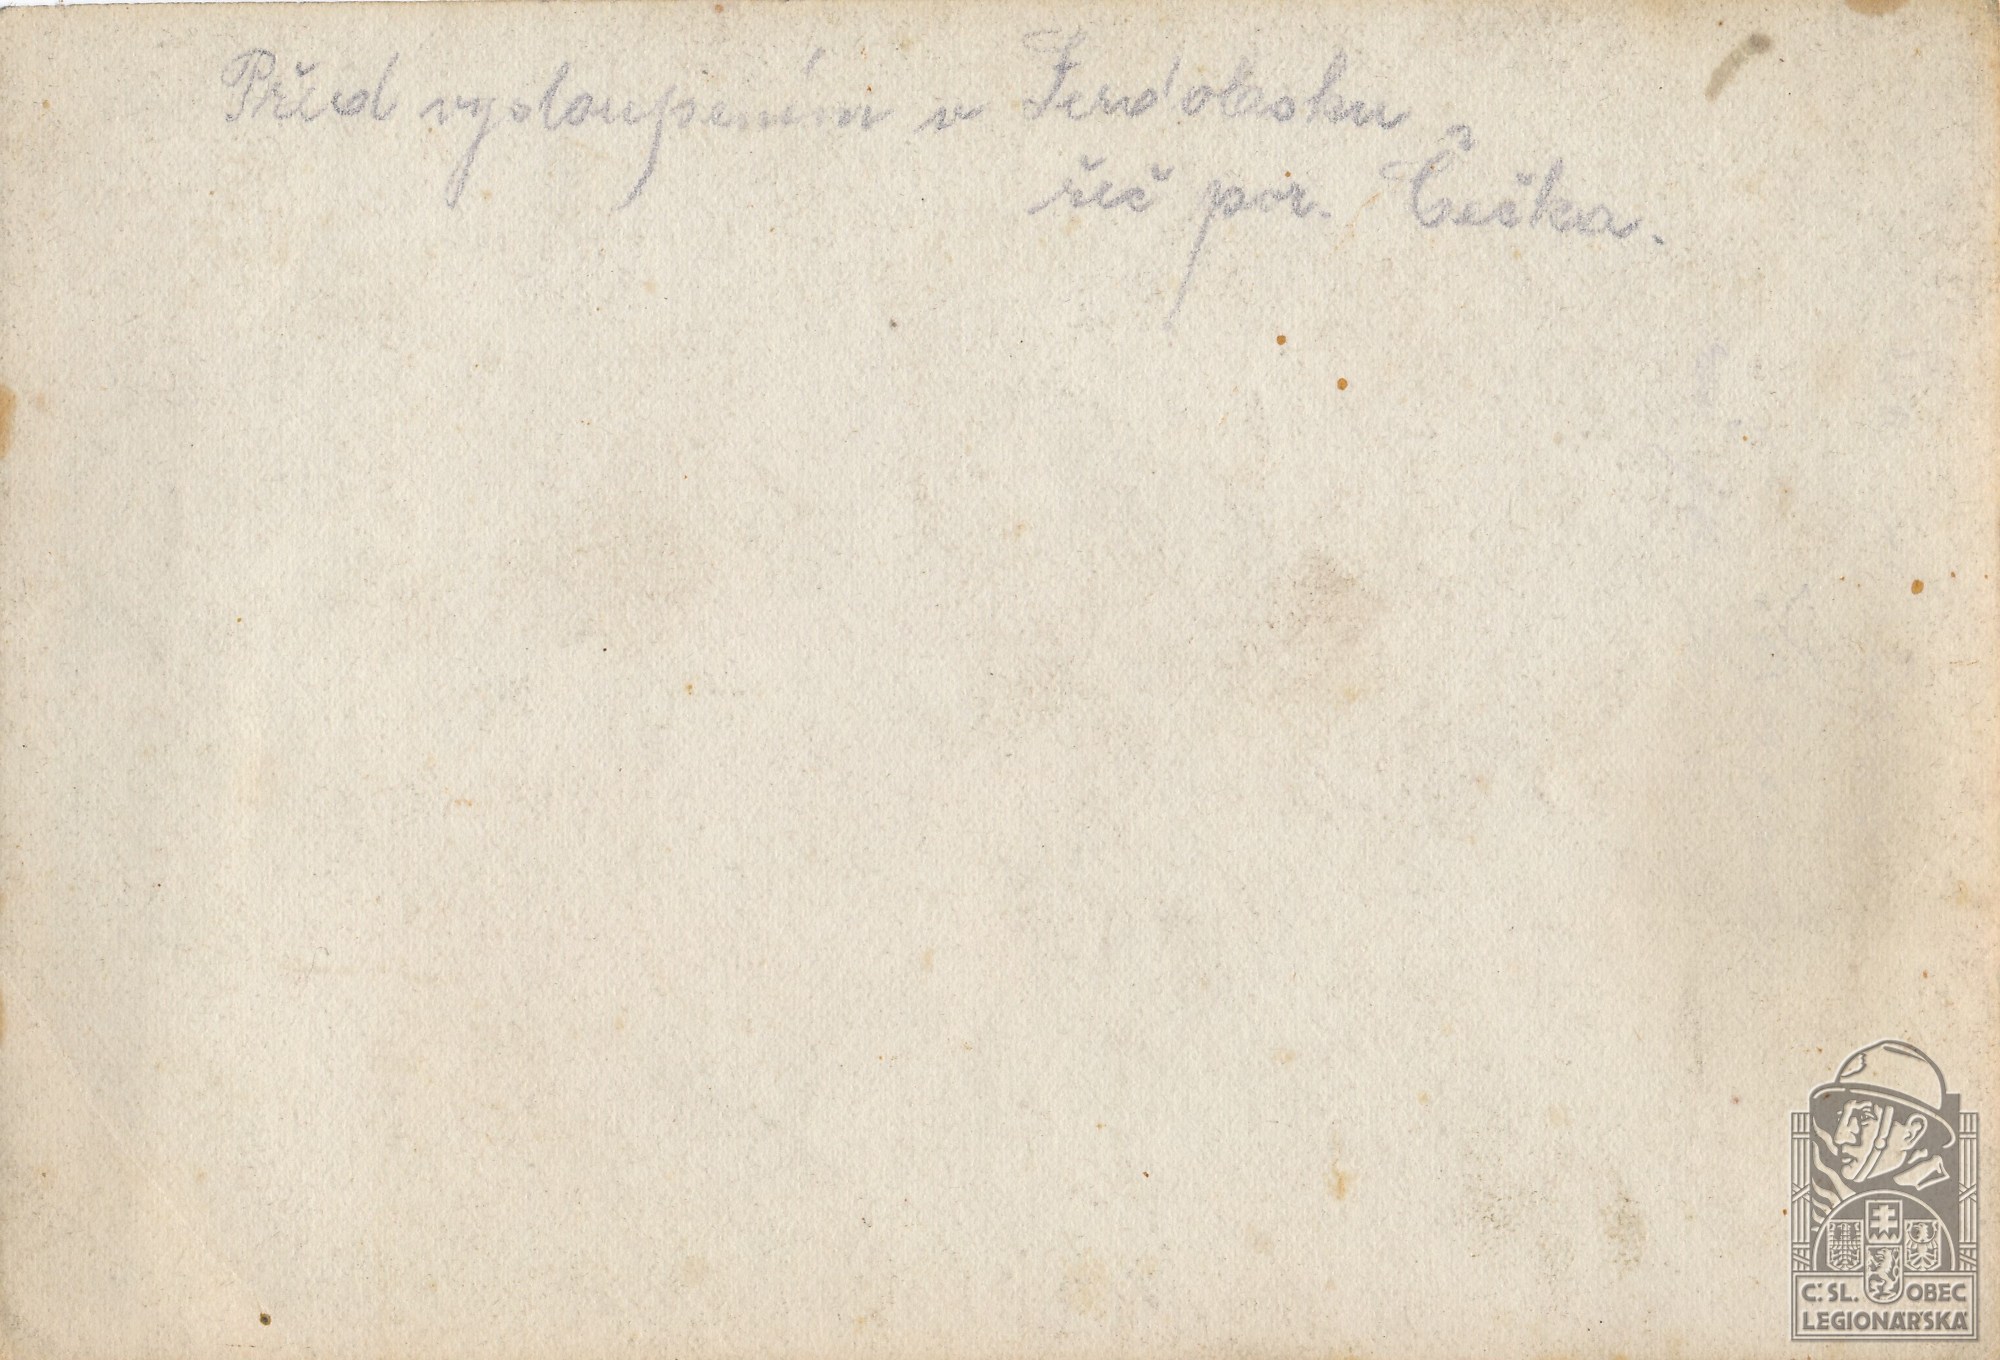 Před vystoupením v Serdobsku
řeč por. Čečka.
Č.SL. OBEC
LEGIONÁŘSKÁ